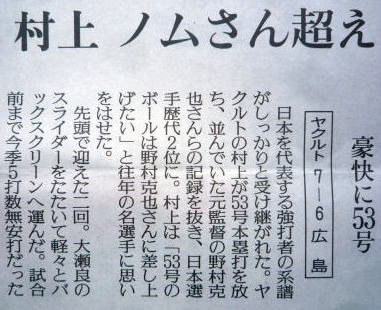 村上 ノムさん超え
豪快に53号
ヤクルト 7―6 広島
日本を代表する強打者の系譜
がしっかりと受け継がれた。ヤ
クルトの村上が53号本塁打を放
ち、並んでいた元監督の野村克
也さんらの記録を抜き、日本選
手歴代2位に。村上は「53号の
ボールは野村克也さんに差し上
げたい」と往年の名選手に思い
をはせた。
先頭で迎えた二回。大瀬良の
スライダーをたたいて軽々とバ
ックスクリーンへ運んだ。試合
前まで今季5打数無安打だった